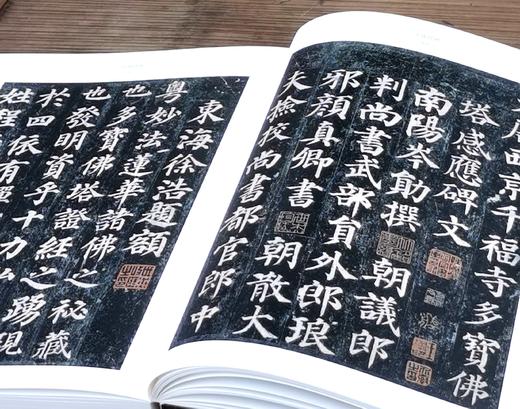 西京千福寺多寶佛
塔感應碑文
南陽岑勛撰 朝議郎
判尚書武部員外郎琅
邪顏真卿書 朝散大
夫撿校尚書都官郎中
東海徐浩題額
粵妙法蓮華諸佛之秘藏
也多寶佛塔證經之踴現
也發明資乎十力弘
於四依有禪
姓程